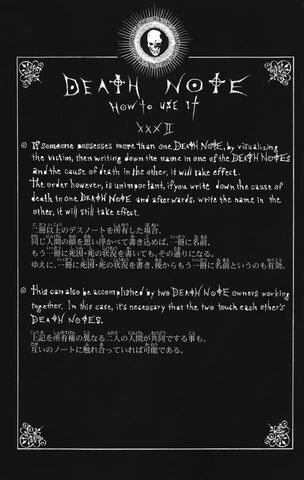 DEATH NOTE
HOW TO USE IT
XXXII
If someone possesses more than one DEATH NOTE, by visualizing
the victim, then writing down the name in one of the DEATH NOTES
and the cause of death in the other, it will take effect.
The order however, is unimportant, if you write down the cause of
death in one DEATH NOTE and afterwards, write the name in the
other, it will still take effect.
二冊以上のデスノートを所有した場合、
同じ人間の顔を思い浮かべて書き込めば、一冊に名前、
もう一冊に死因・死の状況を書いても、その通りになる。
ゆえに、一冊に死因・死の状況を書き、後からもう一冊に名前というのも有効。
This can also be accomplished by two DEATH NOTE owners working
together. In this case, it's necessary that the two touch each other's
DEATH NOTES.
上記を所有権の異なる二人の人間が共同でする事も、
互いのノートに触れ合っていれば可能である。